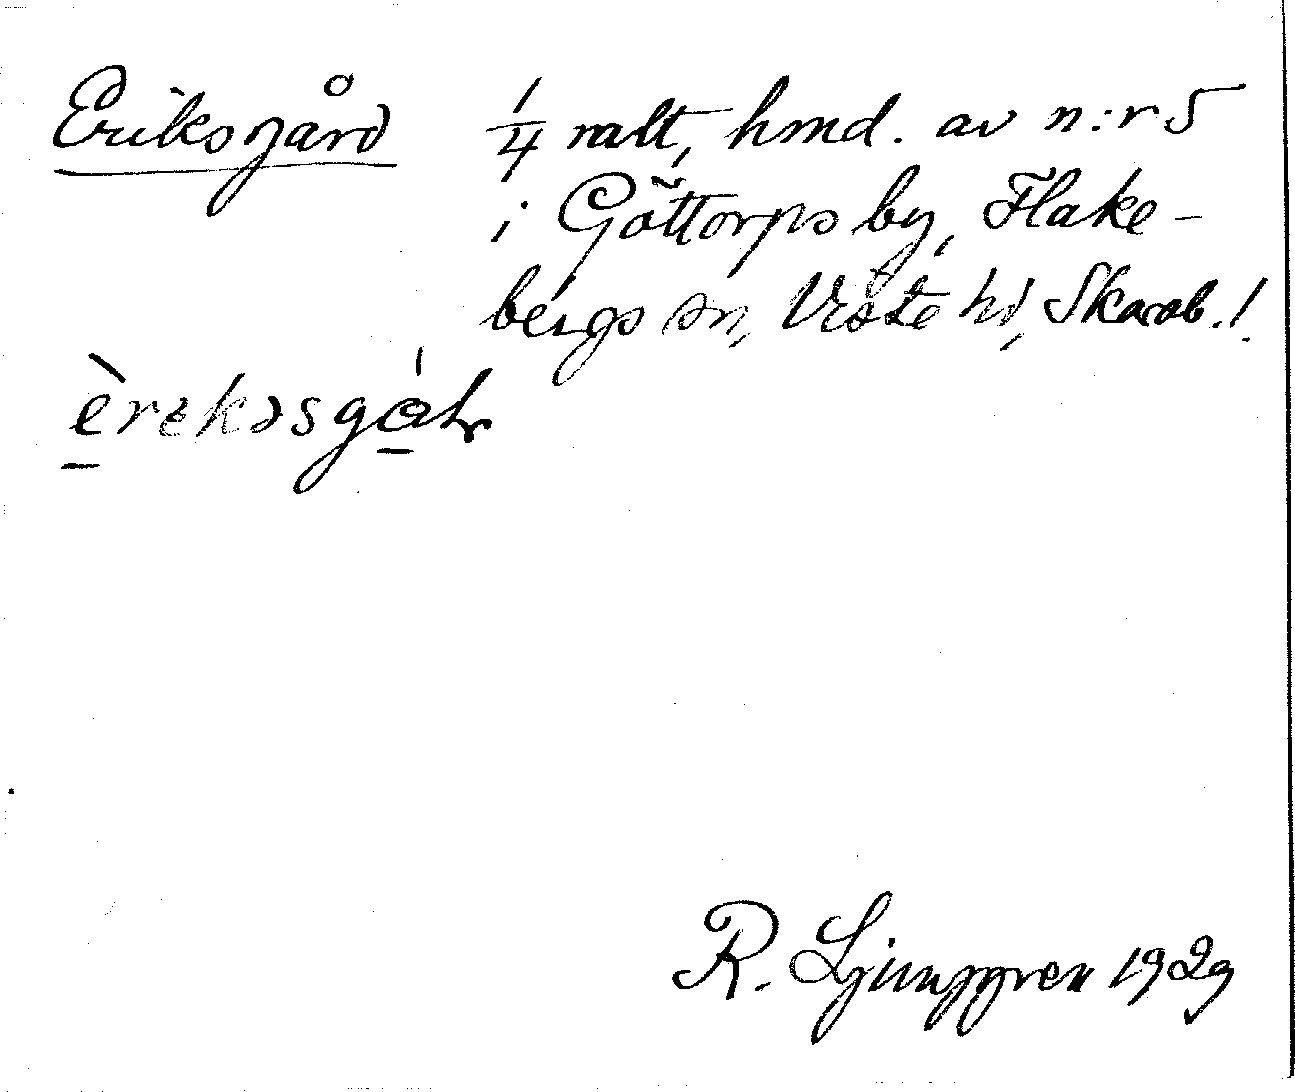 Eriksgård 1/4 malt, hmd. av n:r 5
i Göttorps by, Flake-
bergs sn, Viste hd, Skarab.!
èrekəsgá
R. Ljunggren 1929